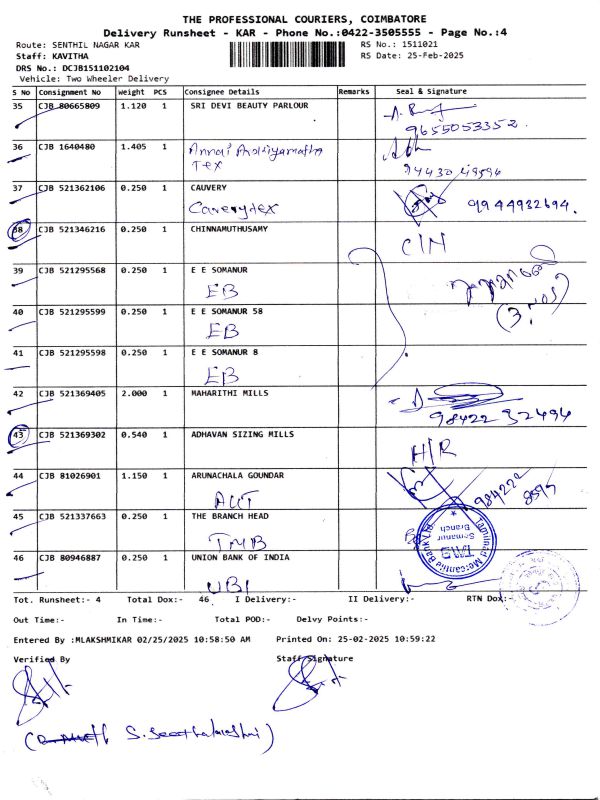 THE PROFESSIONAL COURIERS, COIMBATORE
Delivery Runsheet - KAR - Phone No.:0422-3505555 - Page No.:4
Route: SENTHIL NAGAR KAR RS No.: 1511021
Staff: KAVITHA RS Date: 25-Feb-2025
DRS No.: DCJB151102104
Vehicle: Two Wheeler Delivery
S No Consignment No Weight PCS Consignee Details Remarks Seal & Signature
35 CJB 80665809 1.120 1 SRI DEVI BEAUTY PARLOUR
9655053352.
36 CJB 1640480 1.405 1
Tex
37 CJB 521362106 0.250 1 CAUVERY
Caverytex 9944932694.
38 CJB 521346216 0.250 1 CHINNAMUTHUSAMY
C/N
39 CJB 521295568 0.250 1 E E SOMANUR
EB
40 CJB 521295599 0.250 1 E E SOMANUR 58
EB
41 CJB 521295598 0.250 1 E E SOMANUR 8
EB
42 CJB 521369405 2.000 1 MAHARITHI MILLS
98422 32494
43 CJB 521369302 0.540 1 ADHAVAN SIZING MILLS
H/R
44 CJB 81026901 1.150 1 ARUNACHALA GOUNDAR
984222
45 CJB 521337663 0.250 1 THE BRANCH HEAD
TMB
Tamilnad Mercantile Bank Ltd
TMB
Somanur
Branch
46 CJB 80946887 0.250 1 UNION BANK OF INDIA
UBI
Tot. Runsheet:- 4 Total Dox:- 46 I Delivery:- II Delivery:- RTN Dox:-
Out Time:- In Time:- Total POD:- Delvy Points:-
Entered By :MLAKSHMIKAR 02/25/2025 10:58:50 AM Printed On: 25-02-2025 10:59:22
Verified By Staff Signature